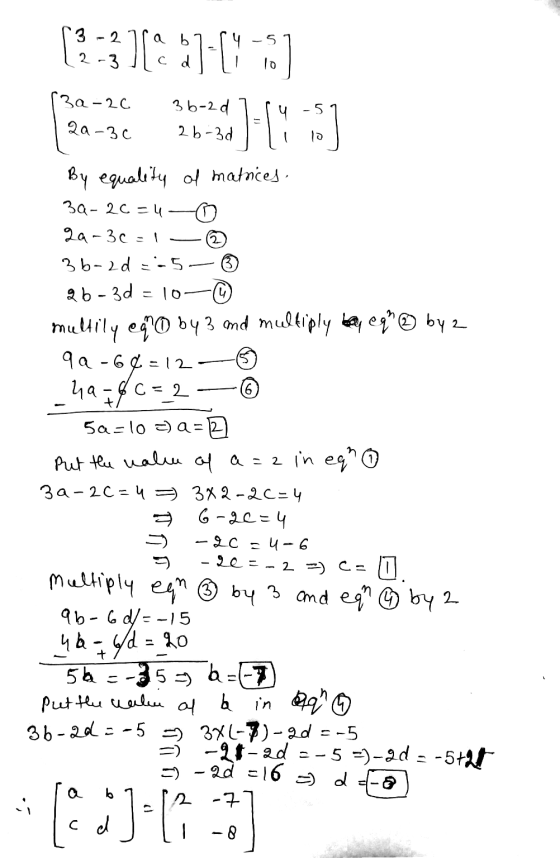 [3 -2] [a b] = [4 -5]
[2 -3] [c d] [1 10]
[3a-2c 3b-2d] = [4 -5]
[2a-3c 2b-3d] [1 10]
By equality of matrices.
3a-2c=4 — ①
2a-3c=1 — ②
3b-2d=-5 — ③
2b-3d=10 — ④
multily eqⁿ ① by 3 and multiply eqⁿ ② by 2
9a-6c=12 — ⑤
4a-6c=2 — ⑥
- + -
5a=10 ⇒ a=2
Put the value of a = 2 in eqⁿ ①
3a-2c=4 ⇒ 3×2-2c=4
⇒ 6-2c=4
⇒ -2c=4-6
⇒ -2c=-2 ⇒ c=1.
Multiply eqⁿ ③ by 3 and eqⁿ ④ by 2
9b-6d=-15
4b-6d=20
- + -
5b=-35 ⇒ b=-7
Put the value of b in eqⁿ
3b-2d=-5 ⇒ 3×(-7)-2d=-5
⇒ -21-2d=-5 ⇒ -2d=-5+21
⇒ -2d=16 ⇒ d=-8
∴ [a b] = [2 -7]
[c d] [1 -8]